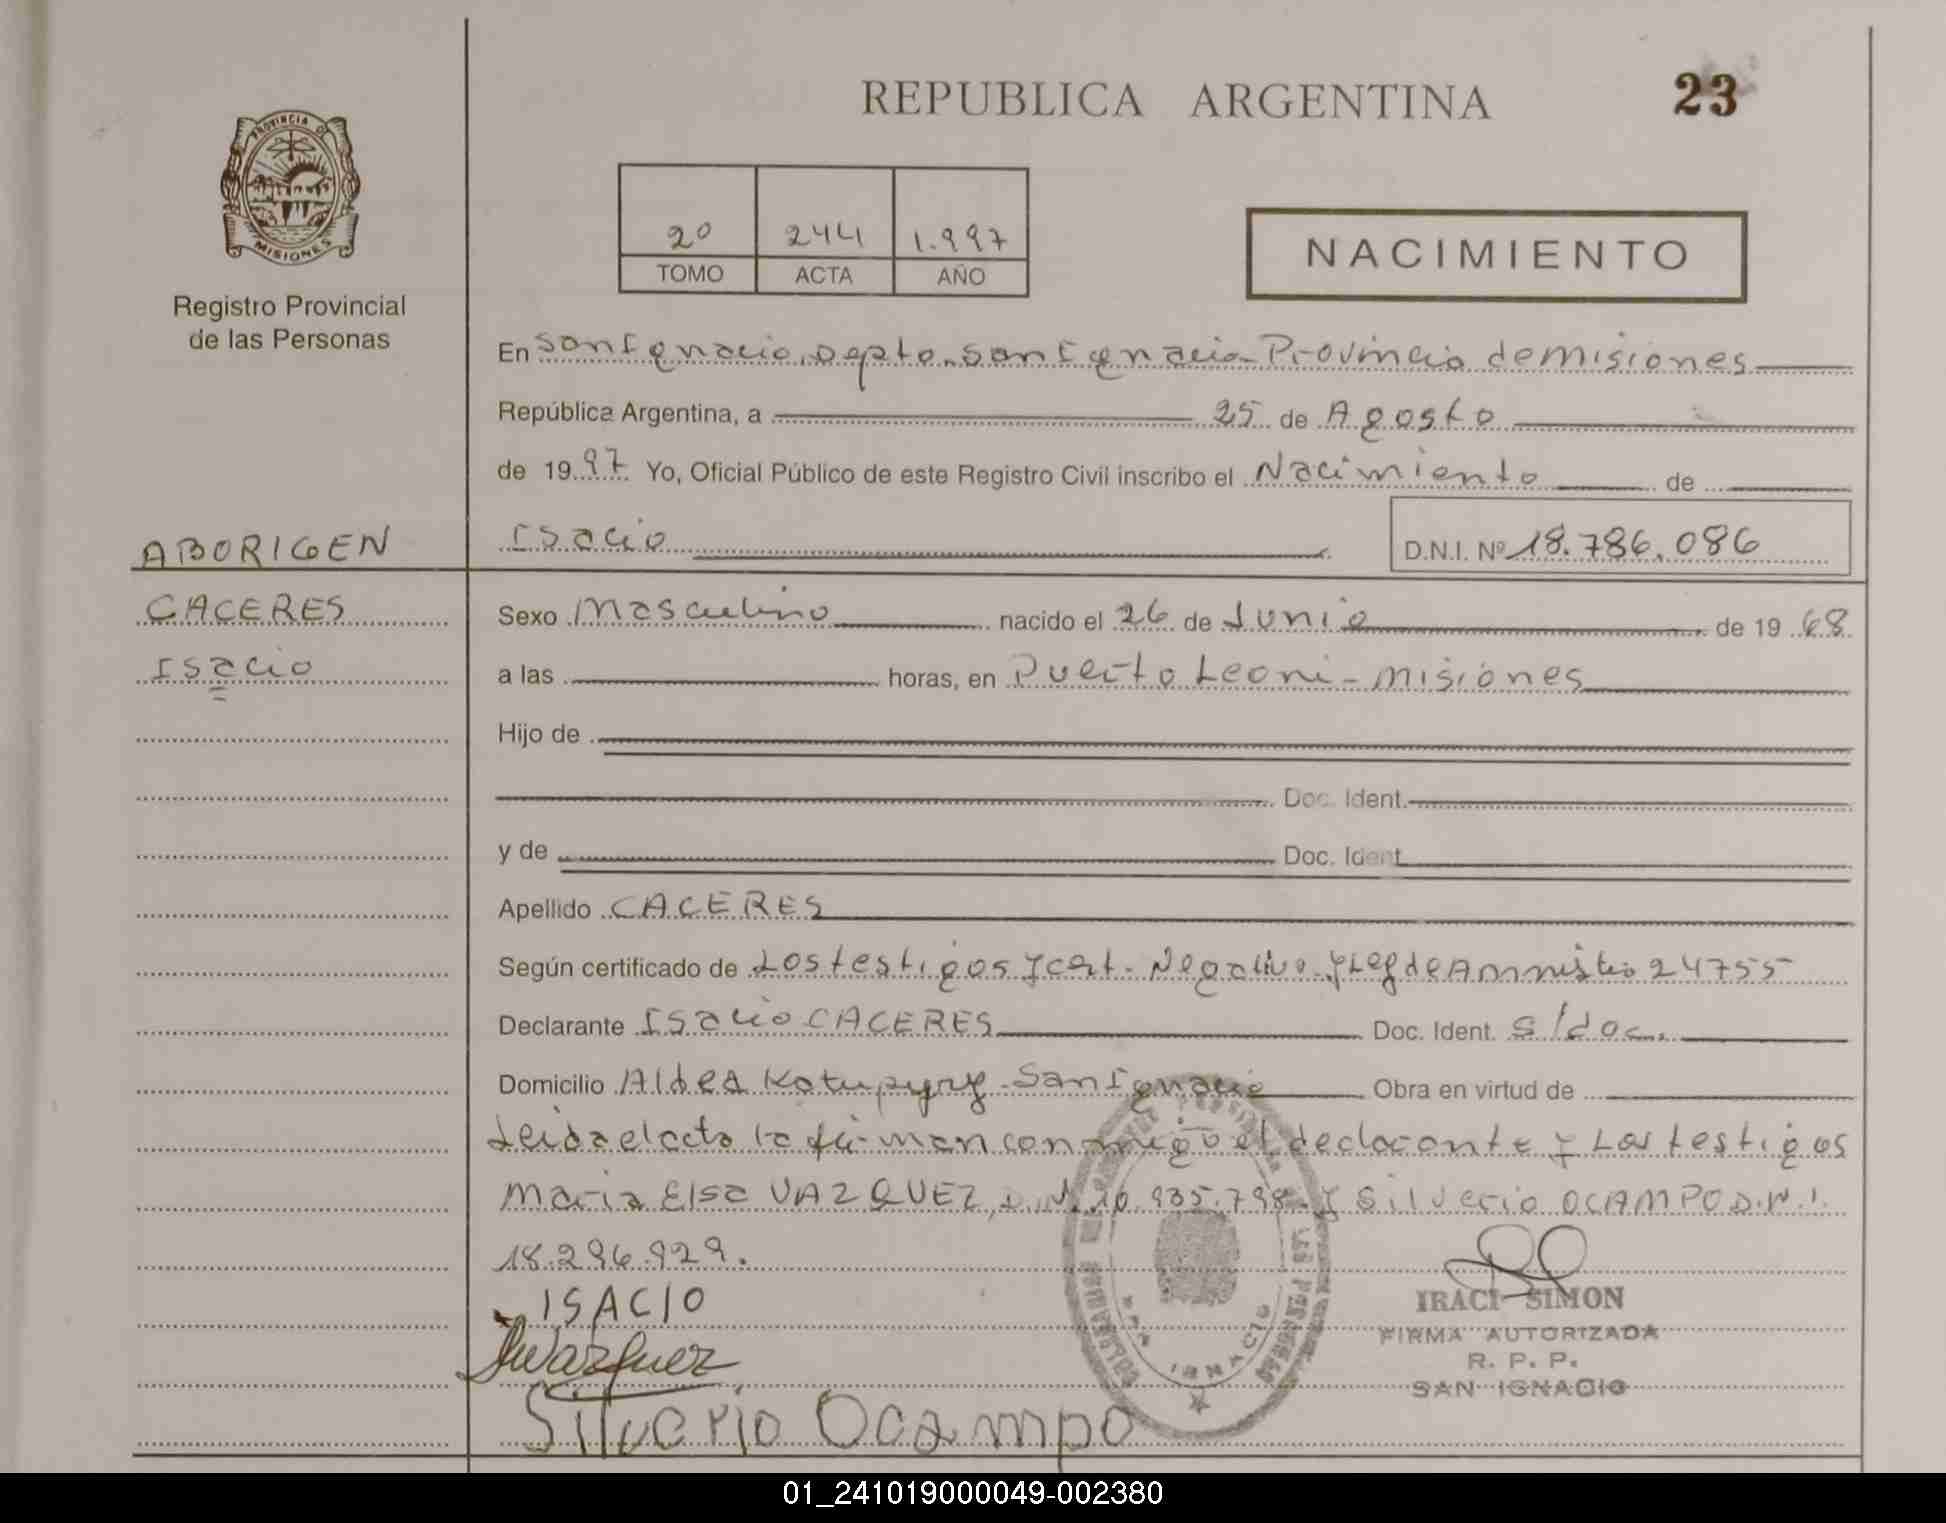 REPUBLICA ARGENTINA
23
PROVINCIA DE MISIONES
Registro Provincial
de las Personas
2º 244 1.997
TOMO ACTA AÑO
NACIMIENTO
En San Ignacio, Depto. San Ignacio - Provincia de misiones
República Argentina, a 25 de Agosto
de 1997 Yo, Oficial Público de este Registro Civil inscribo el Nacimiento de
ABORIGEN
Isacio D.N.I. Nº 18.786.086
CACERES
Isacio
Sexo Masculino nacido el 26 de Junio de 1968
a las horas, en Puerto Leoni - misiones
Hijo de
Doc. Ident.
y de Doc. Ident.
Apellido CACERES
Según certificado de Los testigos y cert. Negativo y Ley de Amnistia 24755
Declarante Isacio CACERES Doc. Ident. s/doc.
Domicilio Aldea Katupyry - San Ignacio Obra en virtud de
Leida el acta la firman conmigo el declarante y Los testigos
Maria Elsa VAZQUEZ, D.N.I. 10.935.798 y Silverio OCAMPO D.N.I.
18.296.929.
ISACIO
Silverio Ocampo
IRACI SIMON
FIRMA AUTORIZADA
R. P. P.
SAN IGNACIO
01_241019000049-002380